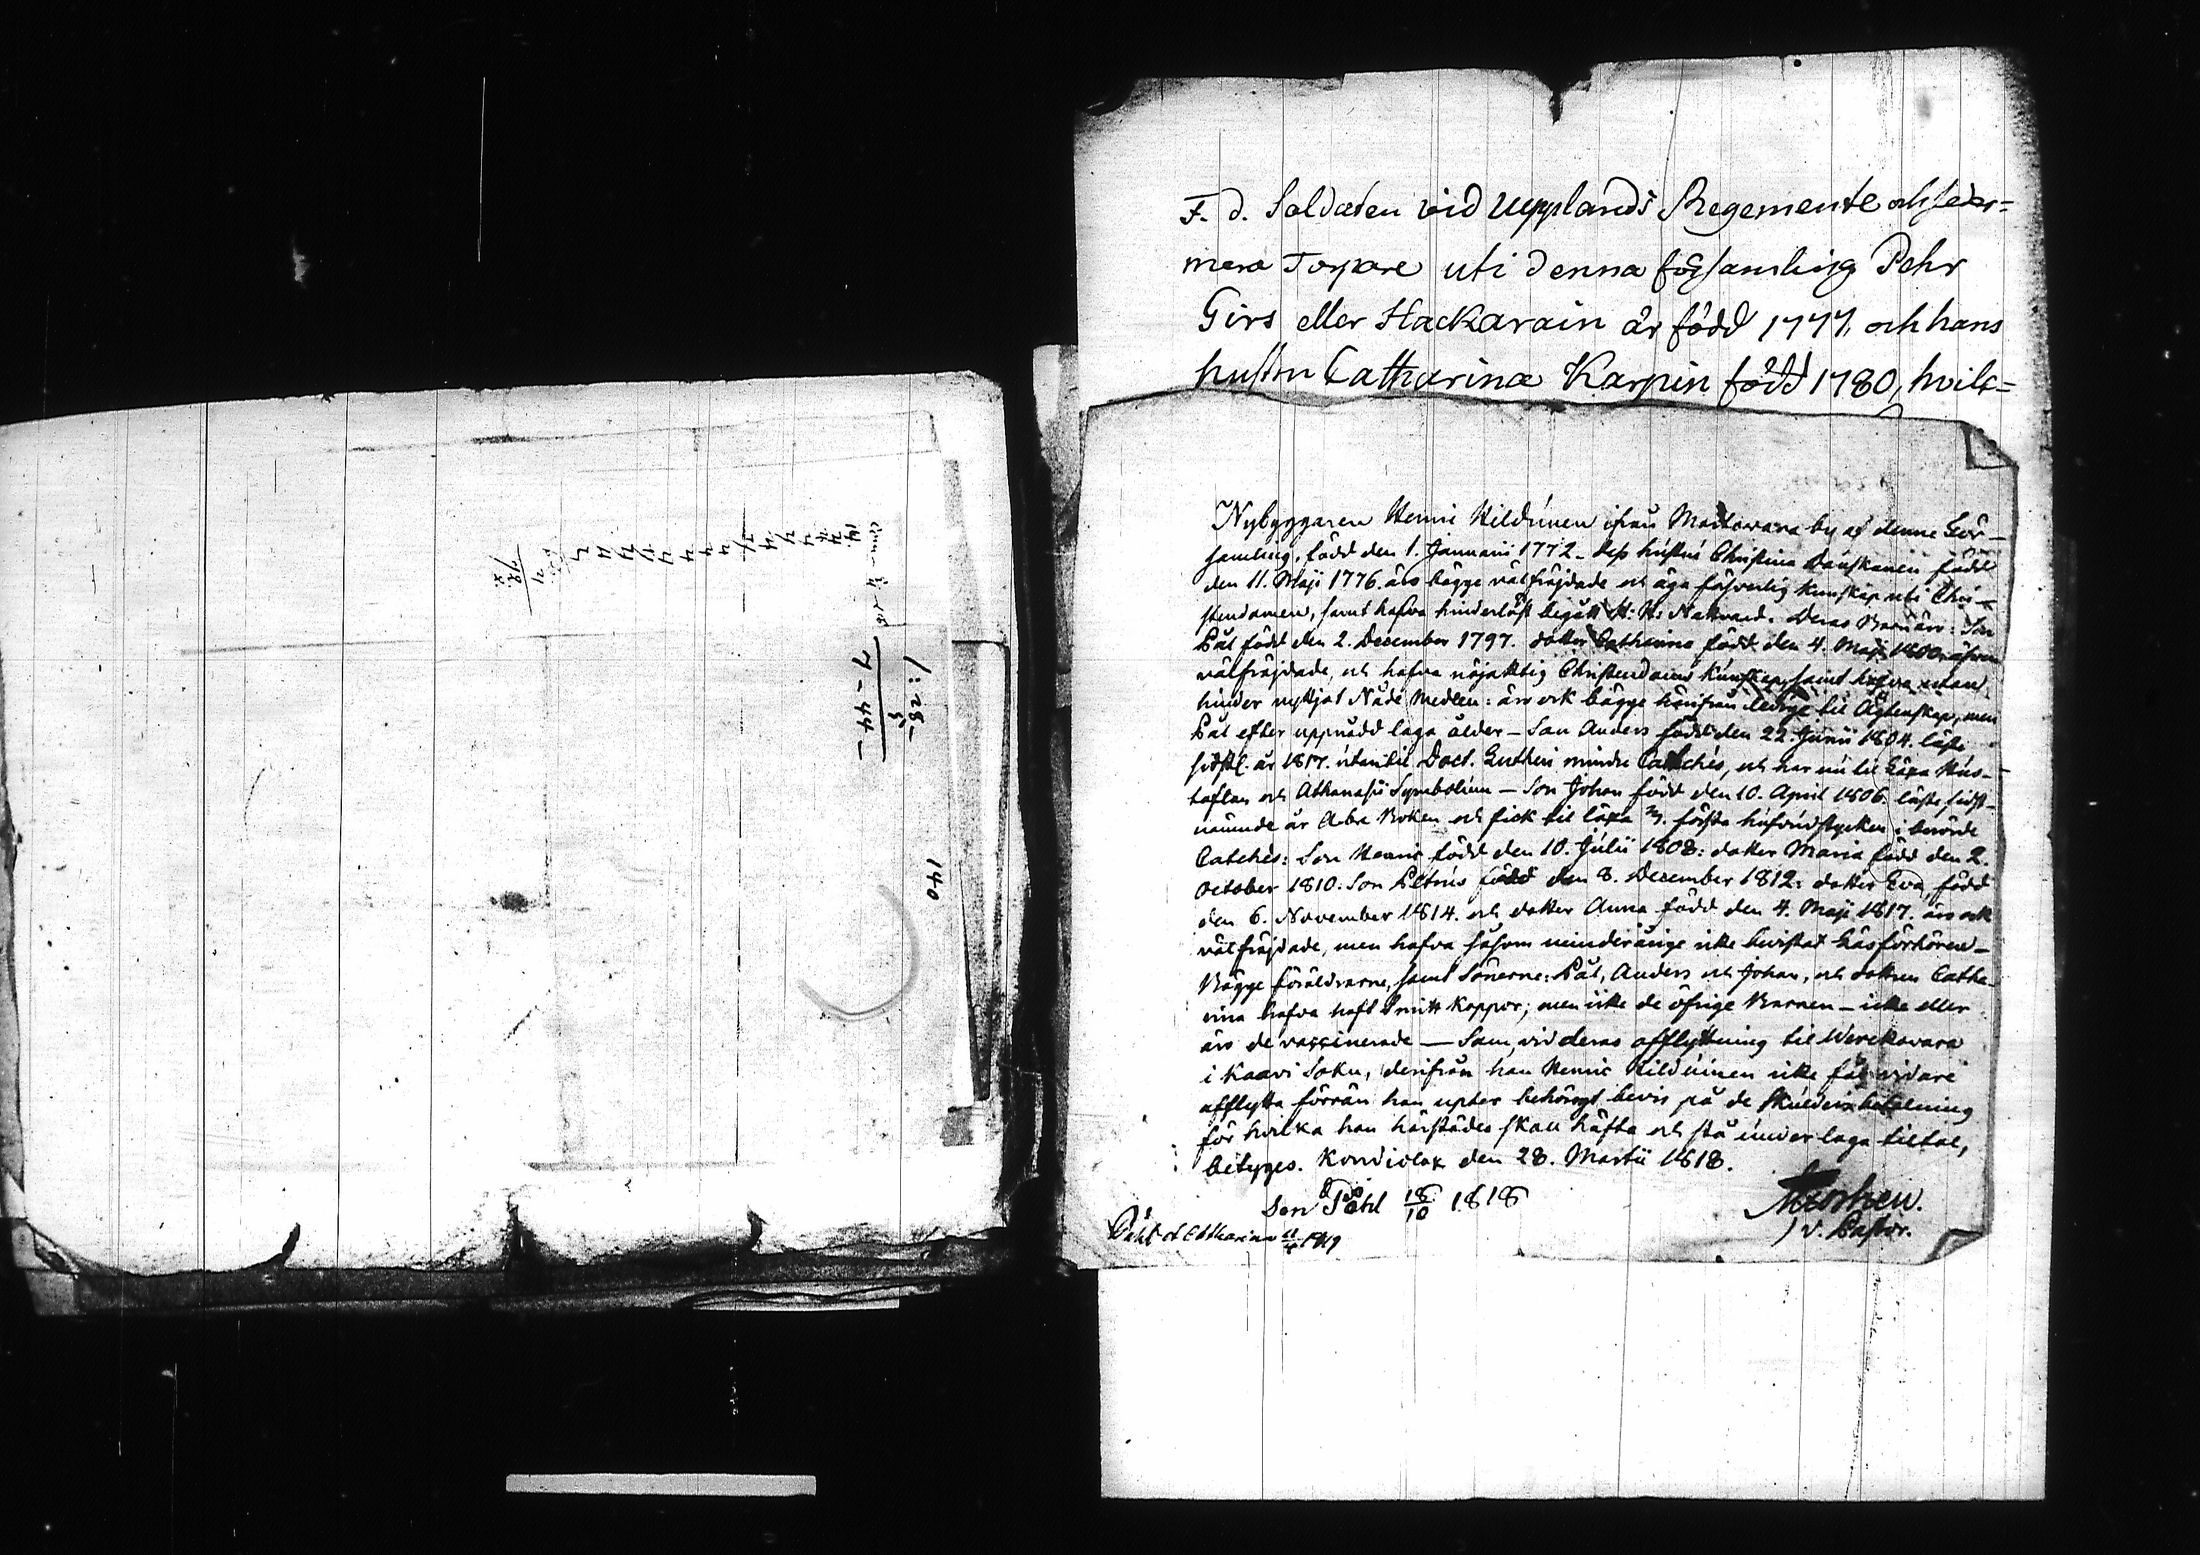 F. d. Soldaten vid Upplands Regemente och seder=
mera Torpare uti denna församling Pehr
Girs eller Hackarain är född 1777, och hans
hustru Catharina Karpin född 1780, hvilk=
Nybyggaren Henric Hildunen ifrån Martowara by af denne För-
samling, född den 1. Januarii 1772 - dess hustru Christina Danskanen född
den 11. Maji 1776. äro bägge välfräjdade och äga försvarlig kunskap uti Chri-
stendomen, samt hafva hinderlöst begått H: H: Nattvard. Deras Barn äro: Son
Pål född den 2. December 1797. dotter Catharina född den 4. Maji 1800. äfven
välfräjdade, och hafva nöjaktig Christendoms kunskap, samt hafva utan
hinder nyttjat Nåde Medlen: äro ock bägge härifrån ledige til Ägtenskap, men
Pål efter uppnådd laga ålder - Son Anders född den 22. Junii 1804. läste
sidstl. år 1817. utantil Doct. Lutheri mindre Cateches, och har nu til läxa Hus-
taflan och Athanasii Symbolum - Son Johan född den 10. April 1806. läste sidst-
nämnde år Abc Boken och fick til läxa 3. första hufvudstycken i berörde
Catechés: Son Henric född den 10. Julii 1808: dotter Maria född den 2.
October 1810: Son Petrus född den 8. December 1812: dotter Eva, född
den 6. November 1814. och dotter Anna född den 4. Maji 1817. äro ock
välfräjdade, men hafva såsom minderårige icke bevistat Läsförhören -
Bägge föräldrarne, samt Sönerne: Pål, Anders och Johan, och dottren Catha-
rina hafva haft Smitt koppor; men icke de öfrige Barnen - icke eller
äro de vaccinerade - Som, vid deras afflyttning til Werekovara
i Kaavi Sokn, derifrån han Henric Hildunen icke får vidare
afflytta förrän han upter behörigt bevis på de skulders betalning
för hvilka han härstädes skall häfta och stå under laga tiltal,
betyges. Kondiolax den 28. Martii 1818.
v. Pastor.
Son Påhl 18/10 1818
Påhl o Catharina 11/4 1819
1: 28 -
7 - 44 -
140